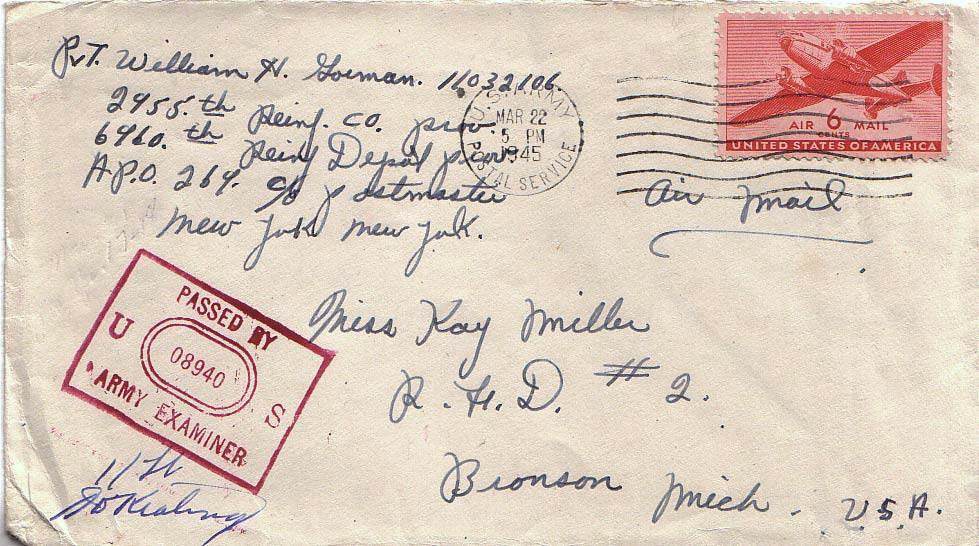 Pvt. William H. Gorman. 11032106.
2955.th Reinf. Co. prov
6960.th Reinf Depot prov
A.P.O. 264. c/o postmaster
New York New York.
U.S. ARMY
MAR 22
5 PM
1945
POSTAL SERVICE
AIR 6 MAIL
CENTS
UNITED STATES OF AMERICA
Air Mail
PASSED BY
U 08940 S
ARMY EXAMINER
Miss Kay Miller
R. H. D. # 2.
Bronson Mich. U.S.A.